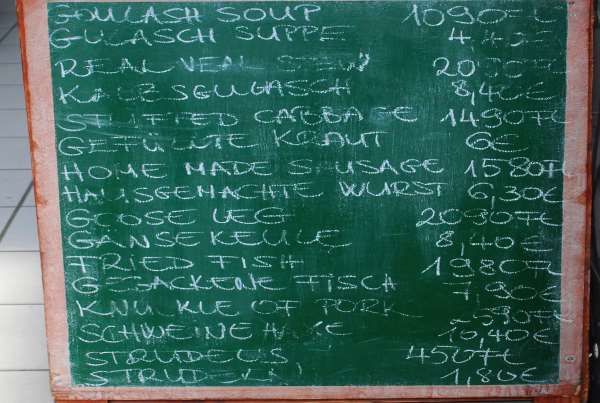 GULASH SOUP 1090FT
GULASCH SUPPE 4,40€
REAL VEAL STEW
KALBSGULASCH 8,40€
STUFFED CABBAGE 1490FT
GEFÜLLTE KRAUT 6€
HOME MADE SAUSAGE 1580FT
HAUSGEMACHTE WURST 6,30€
GOOSE LEG 2090FT
GANSEKEULE 8,40€
FRIED FISH 1980FT
GEBACKENE FISCH 7,90€
KNUCKLE OF PORK
SCHWEINEHAXE 10,40€
STRUDELS 450FT
1,80€